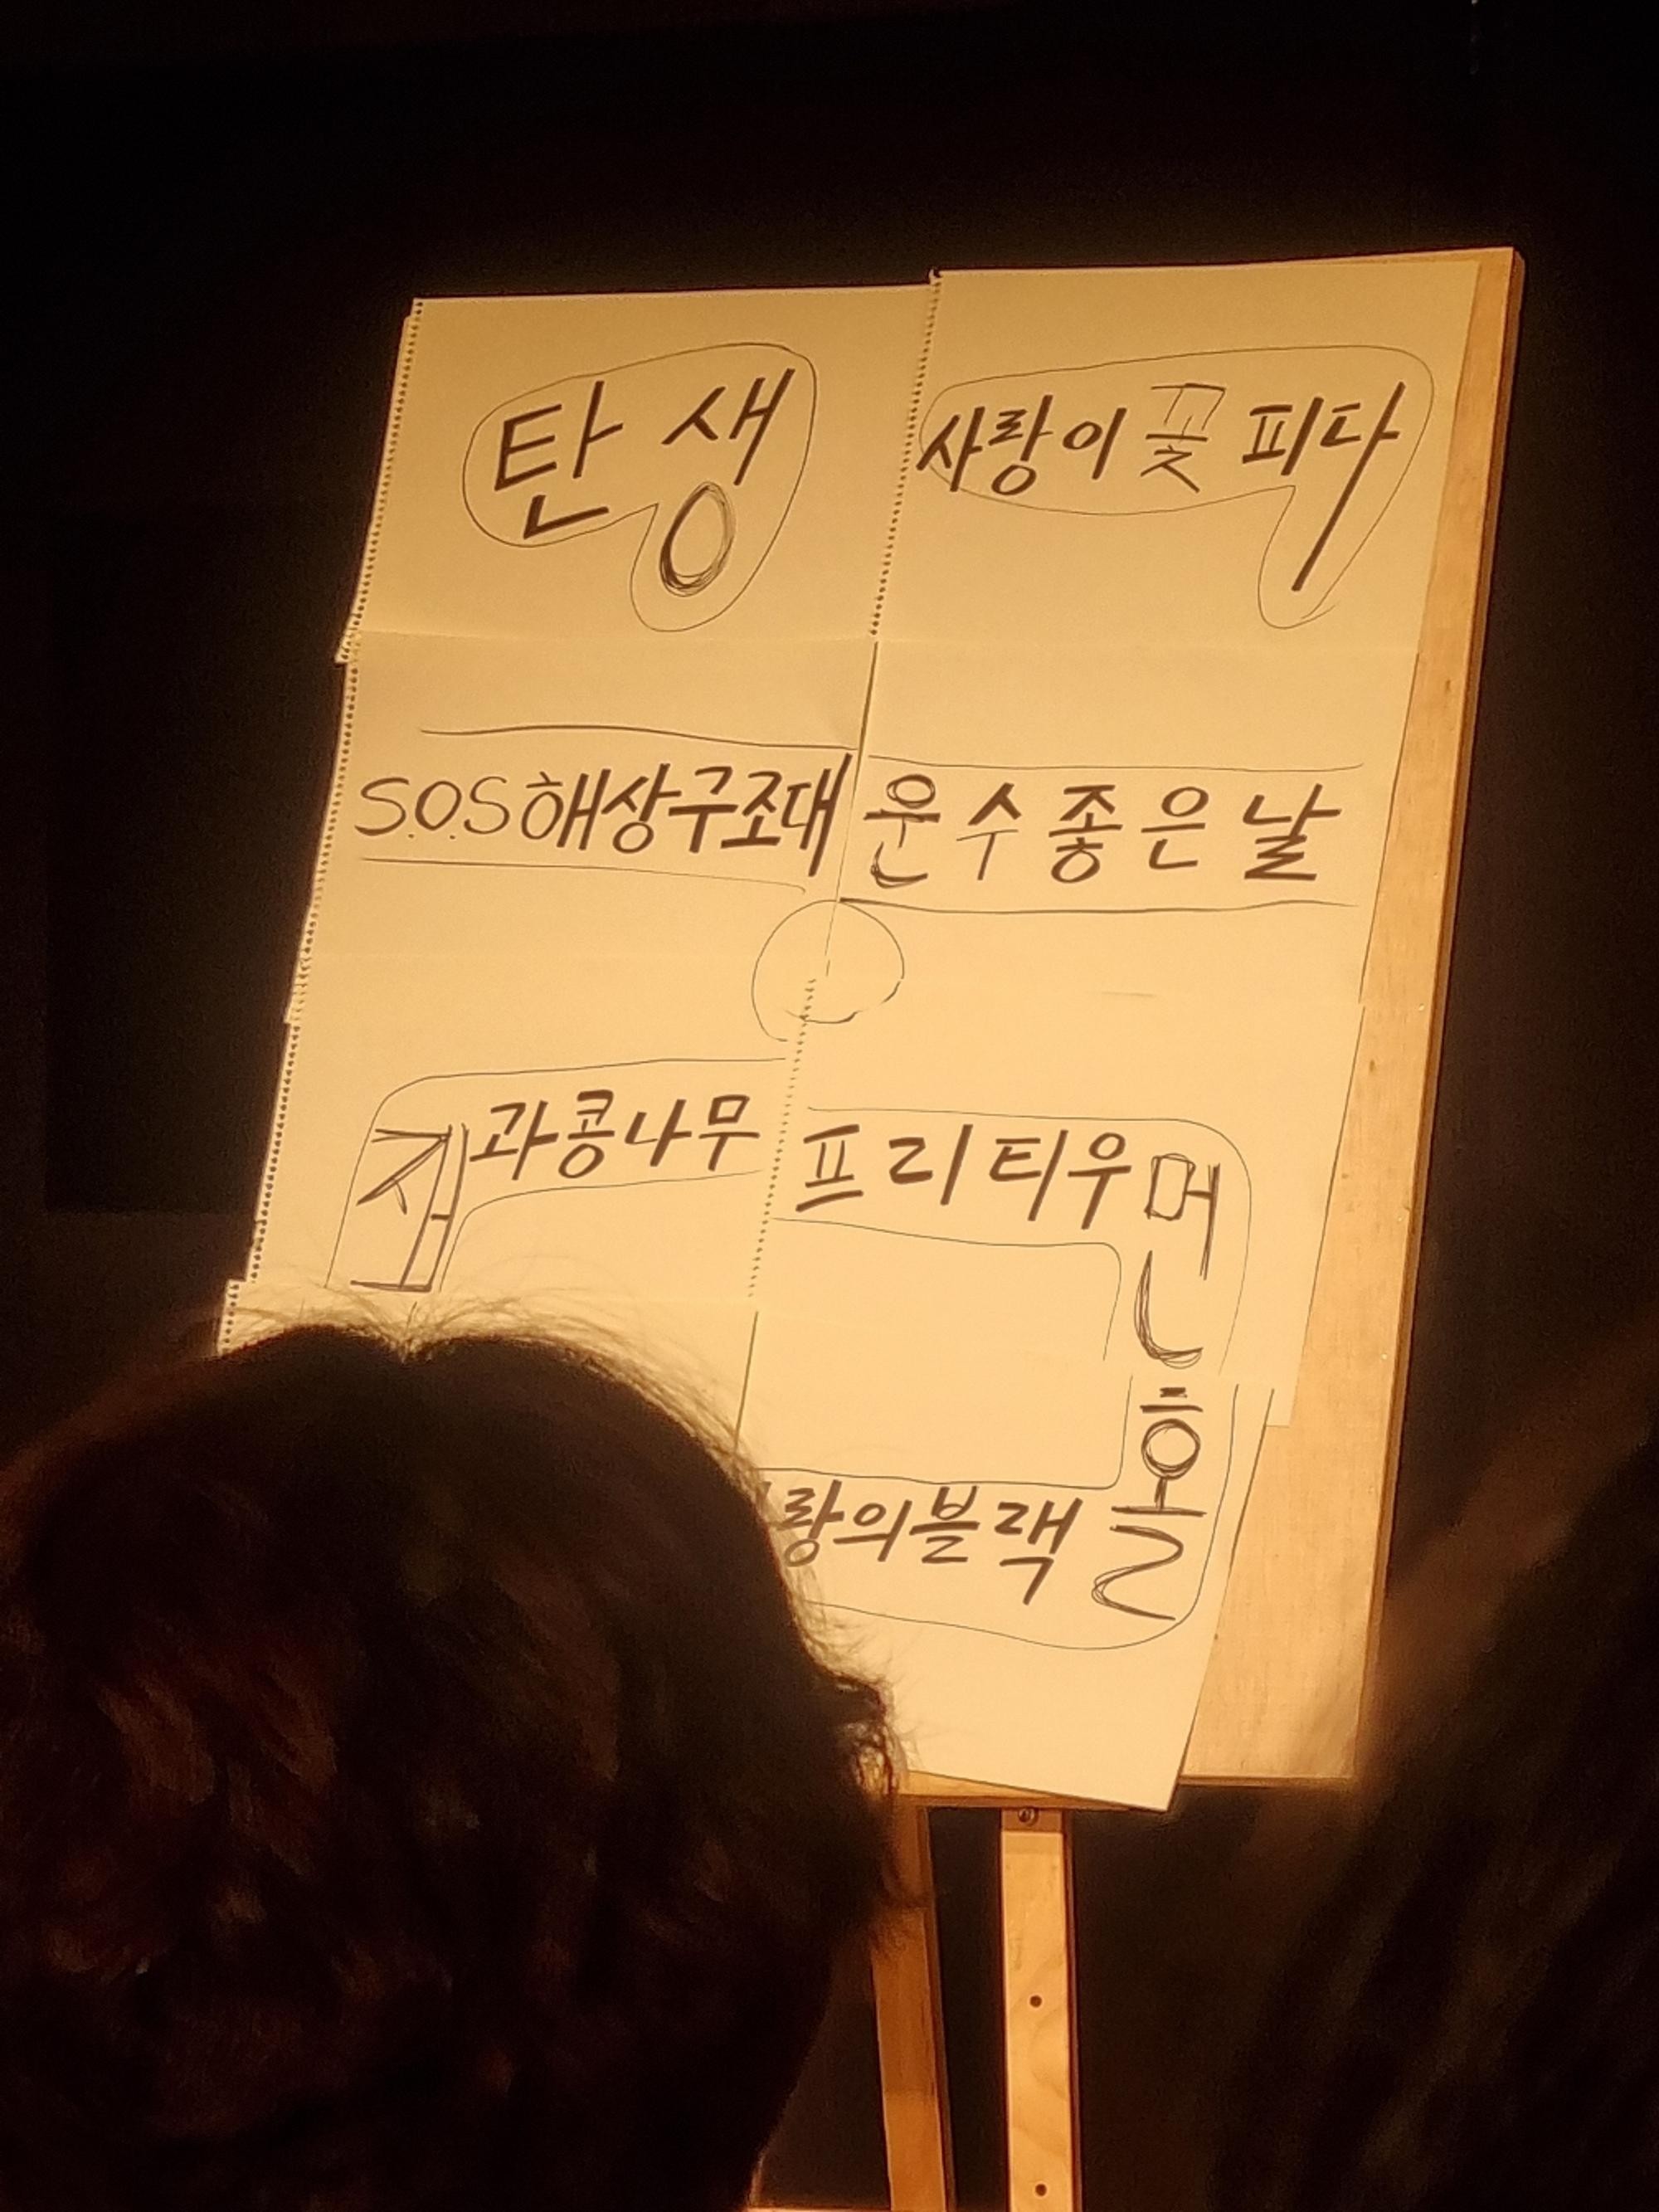 탄생
사랑이 꽃 피다
S.O.S 해상구조대
운수 좋은 날
잭과콩나무
프리티우먼
랑의블랙홀